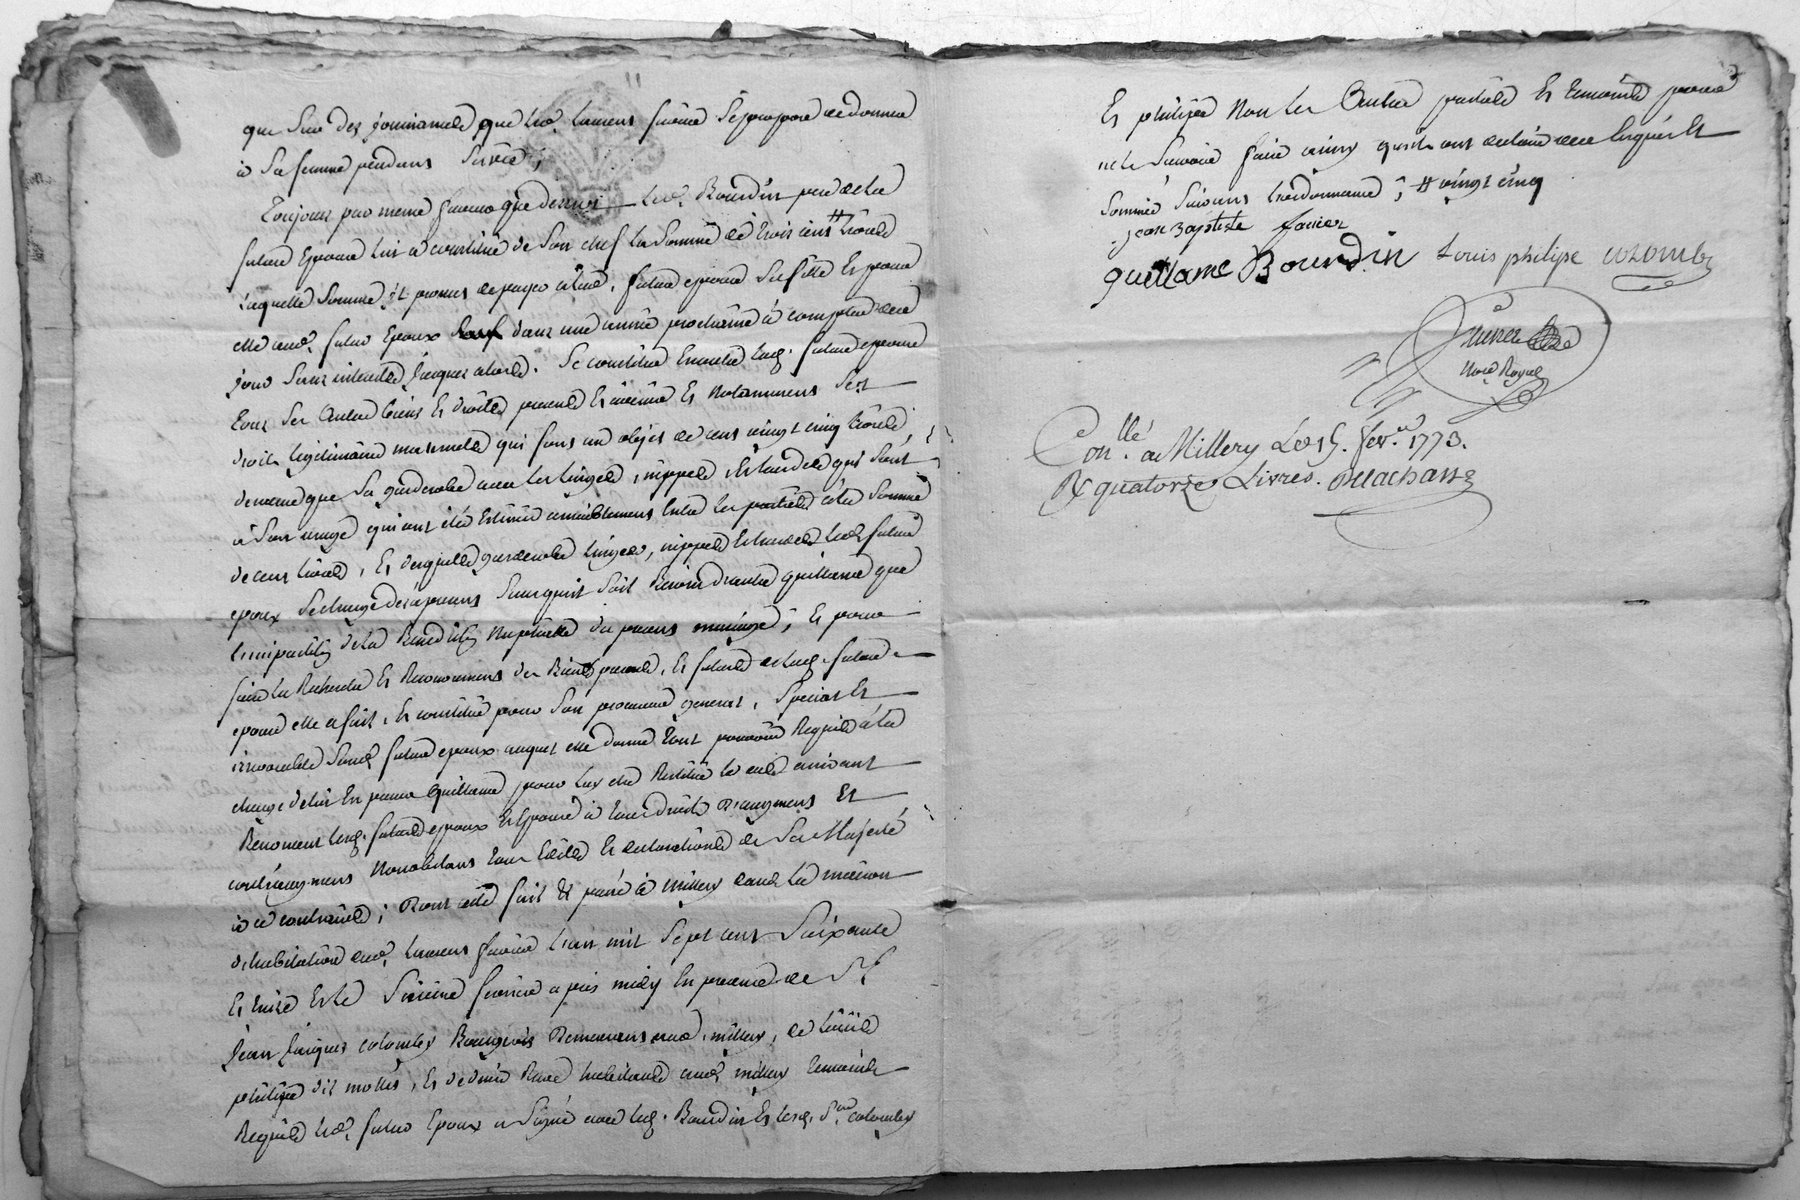 que sur des jouissances que led. Laurent favier se propose de donner
à sa femme pendant sa vie ;
Toujours par meme faveur que dessus led. Bourdin pere de la
future Epouse luy a constitué de son chef la somme de trois cens livres
laquelle somme il promet de payer à lad. future epouse sa fille Et pour
elle aud. futur Epoux dans une année prochaine à compter de ce
jour sans interets jusques alors. Se constitue Enoutre lad. future epouse
tous ses autres biens Et droits presents Et avenir Et notamment ses
droits legitimaires maternels qui sont un objet de cent vingt cinq livres,
dememe que sa garderobe avec les linges, nippes, Et hardes qui sont
à son usage qui ont été Estimés amiablement Entre les parties à la somme
de cent livres, Et desquelles garderobe linges, nippes Et hardes led. futur
epoux se charge dès à present sans qu'il soit besoin d'autre quittance que
l'impartition de la Benediction Nuptiale du present mariage ; Et pour
faire la Recherche Et Recouvrement des Biens presents, Et futurs de lad. future
epouse elle a fait, Et constitué pour son procureur general, special Et
irrevocable led. futur epoux auquel elle donne tout pouvoir Requis à la
charge d'elui En passer quittance pour luy etre Restitué le cas arrivant
Renoncent lesd. futurs epoux Et Epouse à tous droits d'augment Et
contr'augment Nonobstant tous Edits Et declarations de Sa Majesté
à ce contraires ; Dont acte fait & passé à millery dans la maison
d'habitation dud. Laurent favier l'an mil sept cent soixante
Et treize Et le sixieme fevrier apres midy En presence de Sr.
jean jacques colomby Bourgeois Demeurant aud. millery, de Louis
philipe dit mollis, Et dud. millery temoins
Requis led. futur Epoux a signé avec led. Bourdin Et lesd. Sr. colomby
Et philipe Non les autres parties Et temoins pour
ne le savoir faire ainsy qu'ils ont declaré de ce Enquis Et
sommés suivant l'ordonnance ; # vingt cinq
jean Baptiste favier
guillame Bourdin Louis philipe colomby
Nore Royal
Conllé. a Millery Le 15. fevr. 1773.
R quatorze Livres. Delachassz